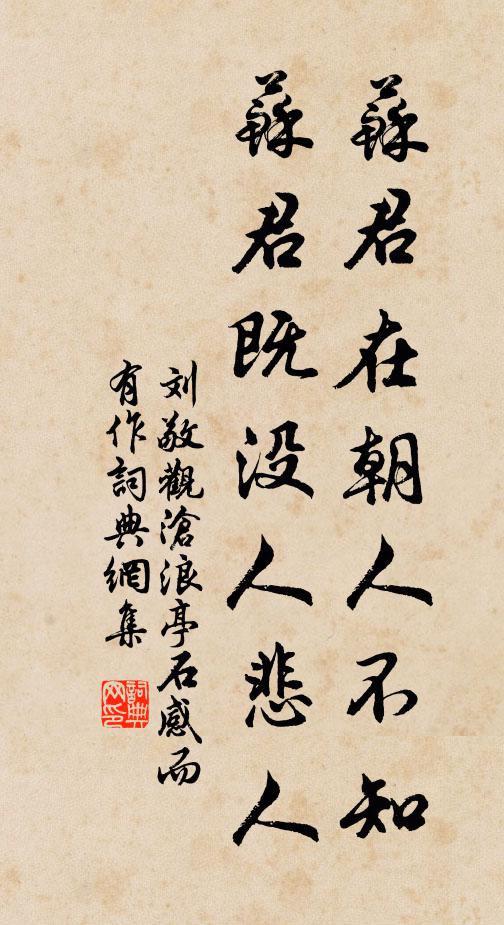 蘇君在朝人不知
蘇君既没人悲人
刘敞觀滄浪亭石感而
有作詞典網集
詞典
网印